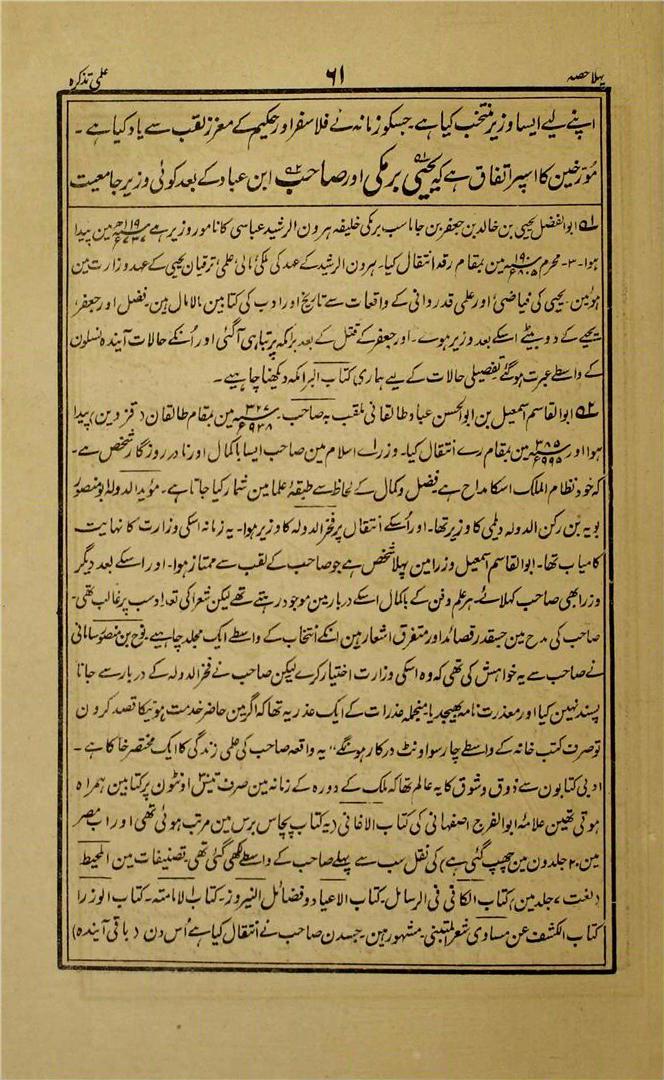 پہلا حصہ ۶۱ علمی تذکرہ
اپنے لیے ایسا وزیر منتخب کیا ہے۔ جسکو زمانہ نے فلاسفر اور حکیم کے معزز لقب سے یاد کیا ہے۔
مؤرخین کا اسپر اتفاق ہے کہ یحییٰ برمکی اور صاحب ابن عباد کے بعد کوئی وزیر جامعیت
۵۱ ابوالفضل یحییٰ بن خالد بن جعفر بن جاماسب برمکی خلیفہ ہرون الرشید عباسی کا نامور وزیر ہے ۱۱۹ھ مین پیدا
ہوا۔ ۳۔ محرم ۱۹۰ھ ۸۰۵ء مین بمقام رقہ انتقال کیا۔ ہرون الرشید کے عہد کی ملکی مالی علمی ترقیان یحییٰ کے عہد وزارت مین
ہوئین۔ یحییٰ کی فیاضی اور علمی قدردانی کے واقعات سے تاریخ اور ادب کی کتابین مالامال ہین۔ فضل اور جعفر،
یحییٰ کے دو بیٹے اسکے بعد وزیر ہوے۔ اور جعفر کے قتل کے بعد برامکہ پر تباہی آگئی اور اُنکے حالات آیندہ نسلون
کے واسطے عبرت ہوگئے تفصیلی حالات کے لیے ہماری کتاب البرامکہ دیکھنا چاہیے۔
۵۲ ابوالقاسم اسمٰعیل بن ابوالحسن عباد طالقانی ملقب بہ صاحب۔ ۳۲۶ھ ۹۳۸ء مین بمقام طالقان (قزوین) پیدا
ہوا اور ۳۸۵ھ ۹۹۵ء مین بمقام رے انتقال کیا۔ وزراے اسلام مین صاحب ایسا باکمال اور نادر روزگار شخص ہے۔
کہ خود نظام الملک اسکا مداح ہے فضل وکمال کے لحاظ سے طبقۂ علما مین شمار کیا جاتا ہے۔ مؤید الدولۂ ابو منصور
بویہ بن رکن الدولہ دیلمی کا وزیر تھا۔ اور اُسکے انتقال پر فخر الدولہ کا وزیر ہوا۔ یہ زمانہ اسکی وزارت کا نہایت
کامیاب تھا۔ ابوالقاسم اسمٰعیل وزرا مین پہلا شخص ہے جو صاحب کے لقب سے ممتاز ہوا۔ اور اسکے بعد دیگر
وزرا بھی صاحب کہلائے ہر علم وفن کے باکمال اسکے دربار مین موجود رہتے تھے لیکن شعرا کی تعداد سب پر غالب تھی۔
صاحب کی مدح مین جسقدر قصائد اور متفرق اشعار ہین انکے انتخاب کے واسطے ایک مجلد چاہیے۔ نوح بن منصور سامانی
نے صاحب سے یہ خواہش کی تھی کہ وہ اسکی وزارت اختیار کرے لیکن صاحب نے فخر الدولہ کے دربار سے جانا
پسند نہین کیا اور معذرت نامہ بھیجدیا منجملہ عذرات کے ایک عذر یہ تھا کہ اگر مین حاضر خدمت ہونیکا قصد کرون
تو صرف کتب خانہ کے واسطے چار سو اونٹ درکار ہونگے،، یہ واقعہ صاحب کی علمی زندگی کا ایک مختصر خاکا ہے۔
ادبی کتابون سے ذوق وشوق کا یہ عالم تھا کہ ملک کے دورہ کے زمانہ مین صرف تیس اونٹون پر کتابین ہمراہ
ہوتی تھین علامۂ ابوالفرج اصفہانی کی کتاب الاغانی (یہ کتاب پچاس برس مین مرتب ہوئی تھی اور اب مصر
مین ۲۰ جلدون مین چھپ گئی ہے) کی نقل سب سے پہلے صاحب کے واسطے لکھی گئی تھی۔ تصنیفات مین المحیط
(لغت ۷ جلد مین) کتاب الکافی فی الرسائل۔ کتاب الاعیاد و فضائل النیروز۔ کتاب الامامتہ۔ کتاب الوزرا
کتاب الکشف عن مساوی شعر المتنبی۔ مشہور ہین۔ جسدن صاحب نے انتقال کیا ہے اُس دن (باقی آیندہ)